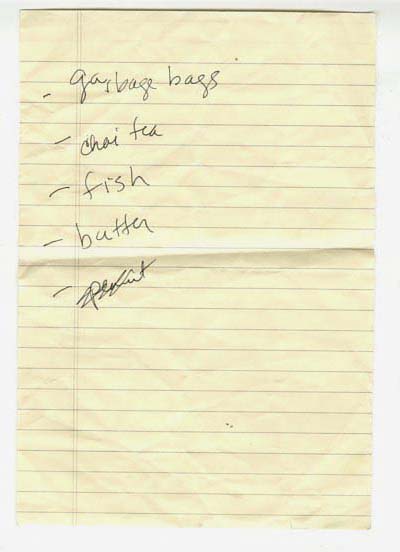 - garbage bags
- chai tea
- fish
- butter
-